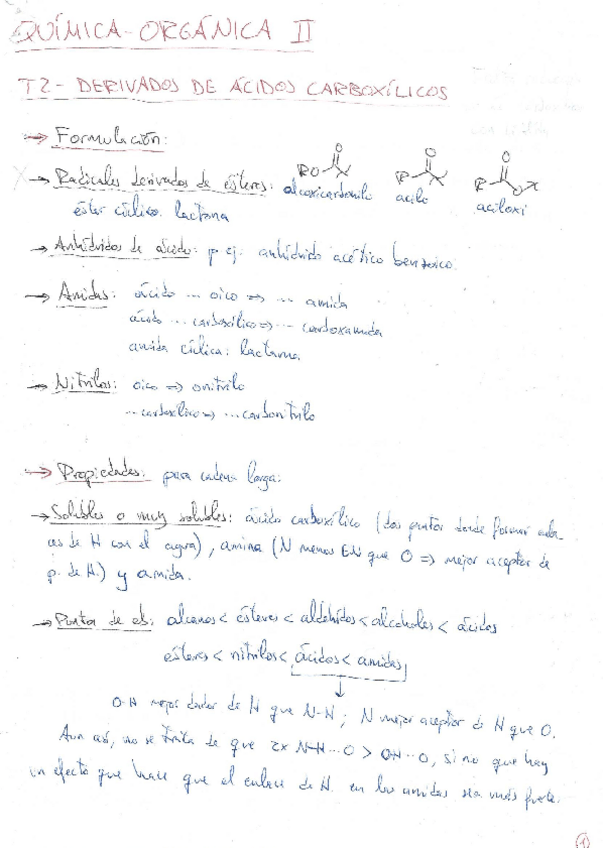 QUÍMICA-ORGÁNICA II
T2- DERIVADOS DE ÁCIDOS CARBOXÍLICOS
→ Formulación:
→ Radicales derivados de ésteres: alcoxicarbonilo acilo aciloxi
RO O R O R O O
éster cíclico: lactona
→ Anhídridos de ácido: p ej: anhídrido acético benzoico.
→ Amidas: ácido ... oico ⇒ ... amida
ácido ... carboxílico ⇒ ... carboxamida
amida cíclica: lactama
→ Nitrilos: oico ⇒ onitrilo
... carboxílico ⇒ ... carbonitrilo
→ Propiedades: para cadena larga:
→ Solubles o muy solubles: ácido carboxílico (dos puntos donde formar enla-
ces de H con el agua), amina (N menos EN que O ⇒ mejor aceptor de
p. de H.) y amida.
→ Puntos de eb: alcanos < ésteres < aldehídos < alcoholes < ácidos
ésteres < nitrilos < ácidos < amidas
O-H mejor dador de H que N-H; N mejor aceptor de H que O.
Aun así, no se trata de que 2x NH···O > OH···O, si no que hay
un efecto que hace que el enlace de H. en las amidas sea más fuerte.
1